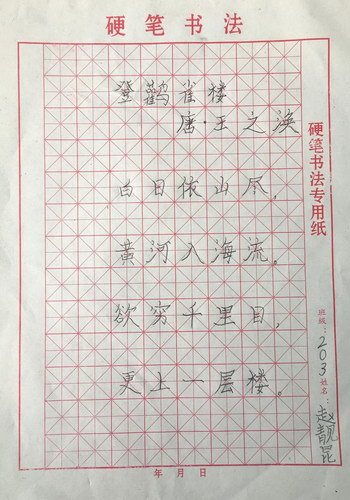 硬笔书法
登鹳雀楼
唐·王之涣
白日依山尽，
黄河入海流。
欲穷千里目，
更上一层楼。
硬笔书法专用纸
班级：203 姓名：赵靓昆
年 月 日